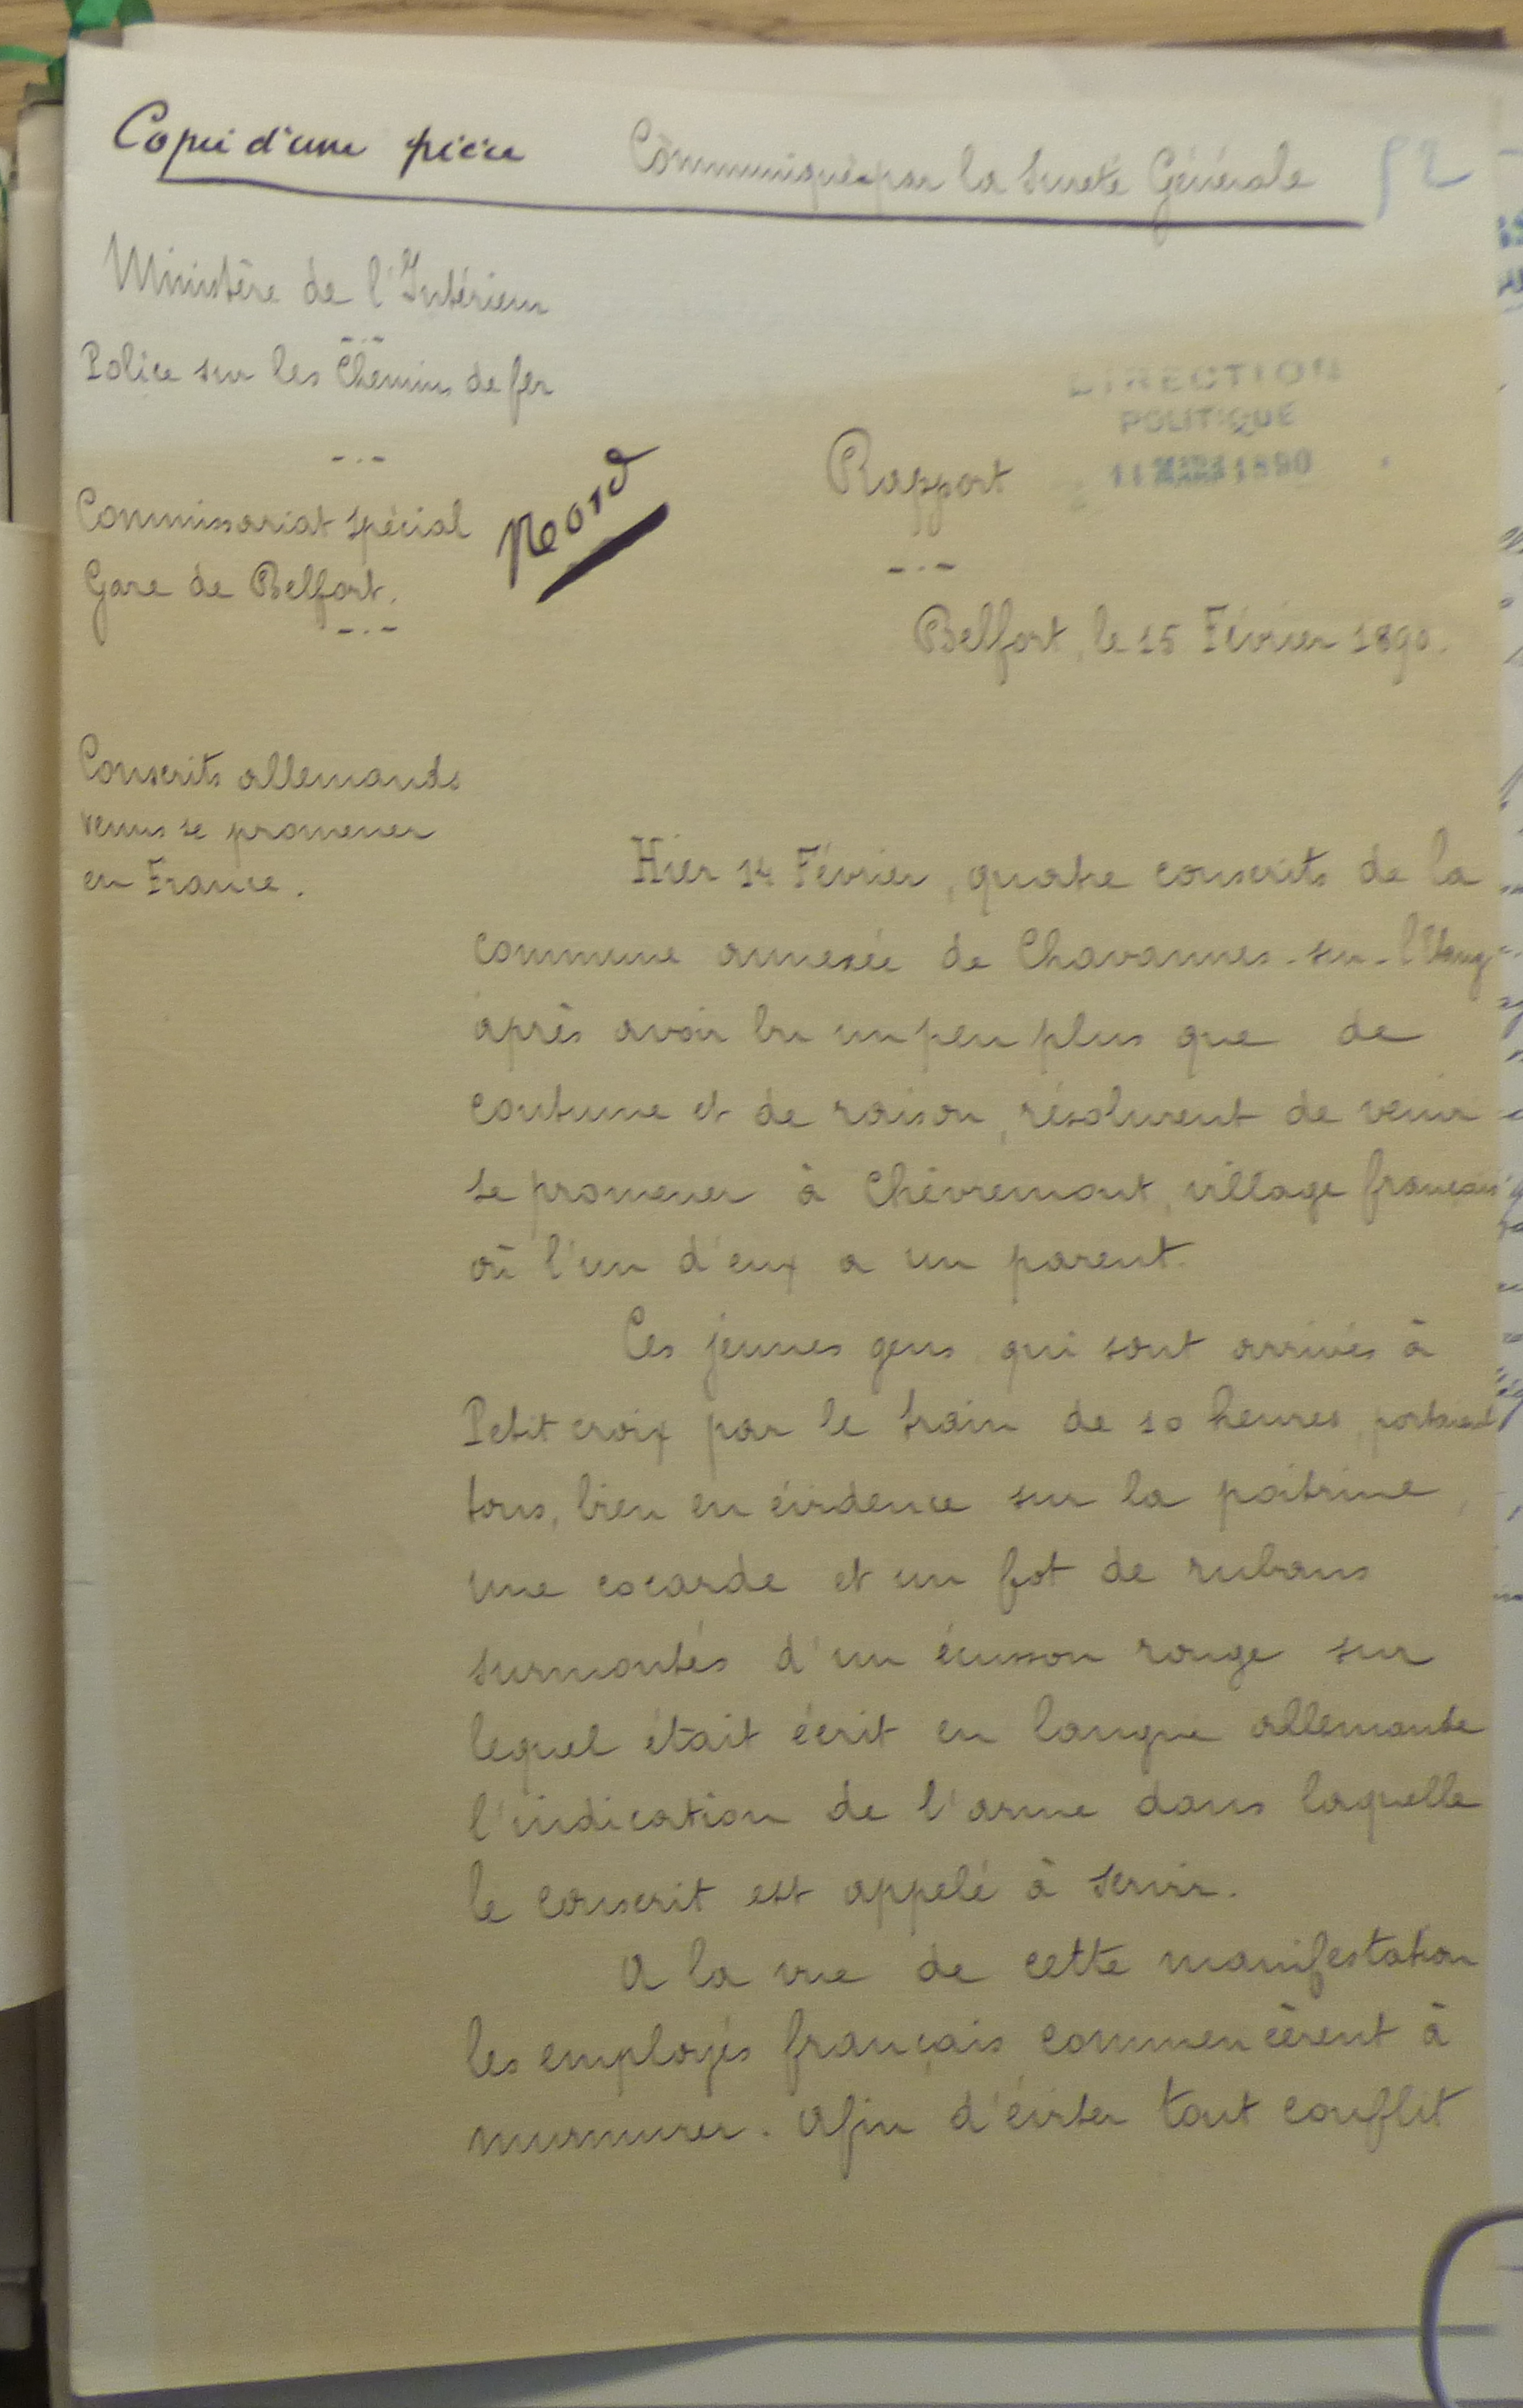 Copie d'une pièce Communiquée par la Sureté Générale 52
Ministère de l'Intérieur
Police sur les Chemins de fer
DIRECTION
POLITIQUE
11 MARS 1890
Commissariat spécial
Gare de Belfort.
Nord
Rapport
Belfort, le 15 Février 1890.
Conscrits allemands
venus se promener
en France.
Hier 14 Février, quatre conscrits de la
commune annexée de Chavannes-sur-l'Etang
après avoir bu un peu plus que de
coutume et de raison, résolurent de venir
se promener à Chèvremont, village français
où l'un d'eux a un parent.
Ces jeunes gens qui sont arrivés à
Petit croix par le train de 10 heures, portaient
tous, bien en évidence sur la poitrine,
une cocarde et un flot de rubans
surmontés d'un écusson rouge sur
lequel était écrit en langue allemande
l'indication de l'arme dans laquelle
le conscrit est appelé à servir.
A la vue de cette manifestation
les employés français commencèrent à
murmurer. Afin d'éviter tout conflit